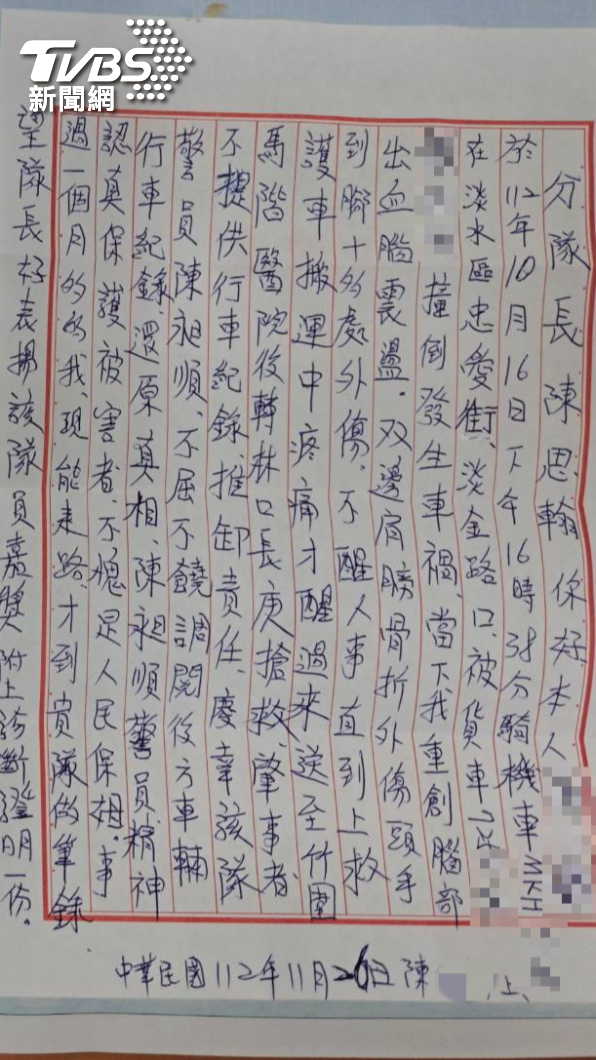 TVBS
新聞網
分隊長陳思翰你好、本人
於112年10月16日下午16時38分騎機車MKH
在淡水區忠愛街、淡金路口、被貨車
撞倒發生車禍、當下我重創腦部
出血腦震盪、双邊肩膀骨折外傷頭手
到腳十多處外傷、不醒人事直到上救
護車搬運中疼痛才醒過來送至竹圍
馬階醫院後轉林口長庚搶救、肇事者
不提供行車紀錄、推卸責任、慶幸該隊
警員陳昶順、不屈不饒調閱後方車輛
行車紀錄、還原真相、陳昶順警員精神
認真保護被害者、不愧是人民保姆、事
過一個月多的我、現能走路、才到貴隊做筆錄、
望隊長好表揚該隊員嘉獎附上診斷證明一份。
中華民國112年11月26日陳 上、